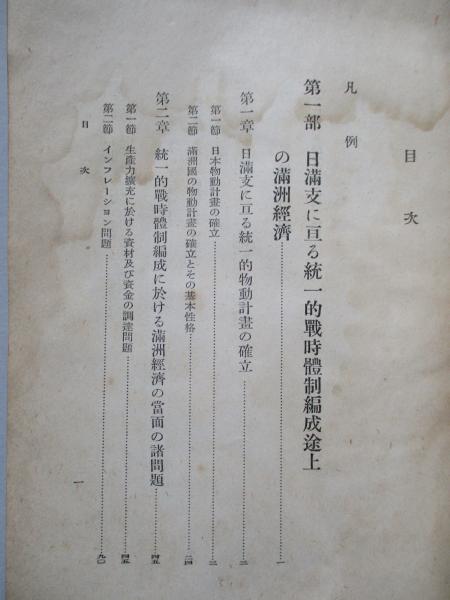 目次
凡例
第一部 日滿支に亘る統一的戰時體制編成途上
の滿洲經濟……………一
第一章 日滿支に亘る統一的物動計畫の確立……………二
第一節 日本物動計畫の確立……………二
第二節 滿洲國の物動計畫の確立とその基本性格……………二四
第二章 統一的戰時體制編成に於ける滿洲經濟の當面の諸問題……………四五
第一節 生産力擴充に於ける資材及び資金の調達問題……………四五
第二節 インフレーション問題……………九〇
目次
一